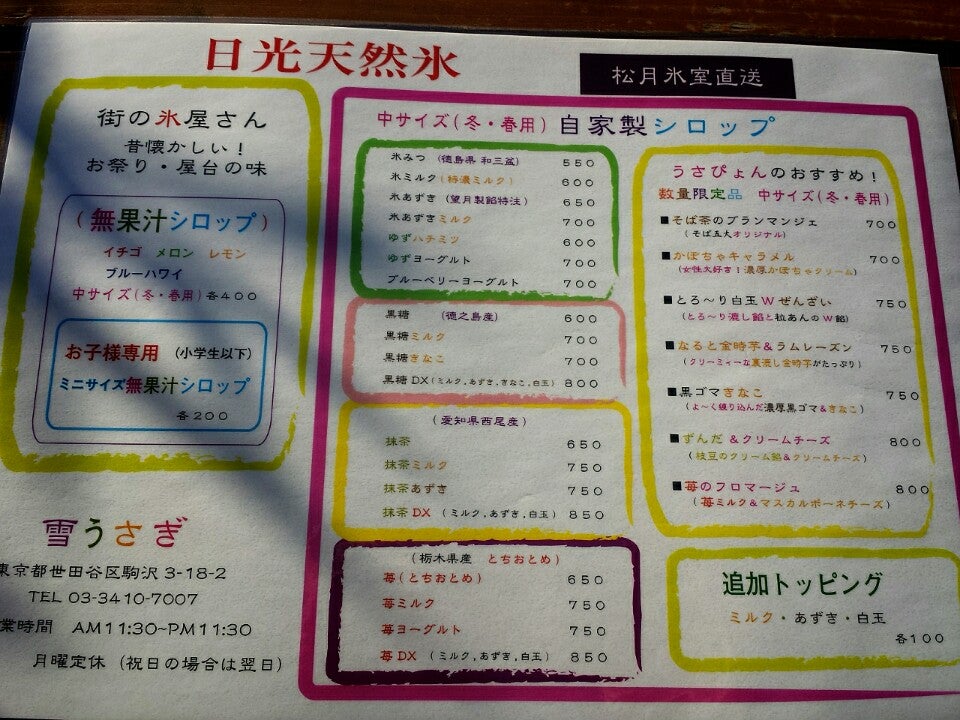 日光天然氷
松月氷室直送
街の氷屋さん
昔懐かしい！
お祭り・屋台の味
(無果汁シロップ)
イチゴ メロン レモン
ブルーハワイ
中サイズ(冬・春用) 各400
お子様専用 (小学生以下)
ミニサイズ無果汁シロップ
各200
雪うさぎ
東京都世田谷区駒沢 3-18-2
TEL 03-3410-7007
業時間 AM11:30~PM11:30
月曜定休 (祝日の場合は翌日)
中サイズ(冬・春用) 自家製シロップ
氷みつ (徳島県 和三盆) 550
氷ミルク (特濃ミルク) 600
氷あずき (望月製餡特注) 650
氷あずきミルク 700
ゆずハチミツ 600
ゆずヨーグルト 700
ブルーベリーヨーグルト 700
黒糖 (徳之島産) 600
黒糖ミルク 700
黒糖きなこ 700
黒糖 DX (ミルク,あずき,きなこ,白玉) 800
(愛知県西尾産)
抹茶 650
抹茶ミルク 750
抹茶あずき 750
抹茶 DX (ミルク,あずき,白玉) 850
(栃木県産 とちおとめ)
苺(とちおとめ) 650
苺ミルク 750
苺ヨーグルト 750
苺 DX (ミルク,あずき,白玉) 850
うさぴょんのおすすめ！
数量限定品 中サイズ(冬・春用)
■そば茶のブランマンジェ 700
(そば五大オリジナル)
■かぼちゃキャラメル 700
(女性大好き！濃厚かぼちゃクリーム)
■とろ～り白玉 W ぜんざい 750
(とろ～り漉し餡と粒あんの W 餡)
■なると金時芋＆ラムレーズン 750
(クリーミィーな裏漉し金時芋がたっぷり)
■黒ゴマきなこ 750
(よ～く練り込んだ濃厚黒ゴマ＆きなこ)
■ずんだ ＆クリームチーズ 800
(枝豆のクリーム餡＆クリームチーズ)
■苺のフロマージュ 800
(苺ミルク＆マスカルポーネチーズ)
追加トッピング
ミルク・あずき・白玉
各100